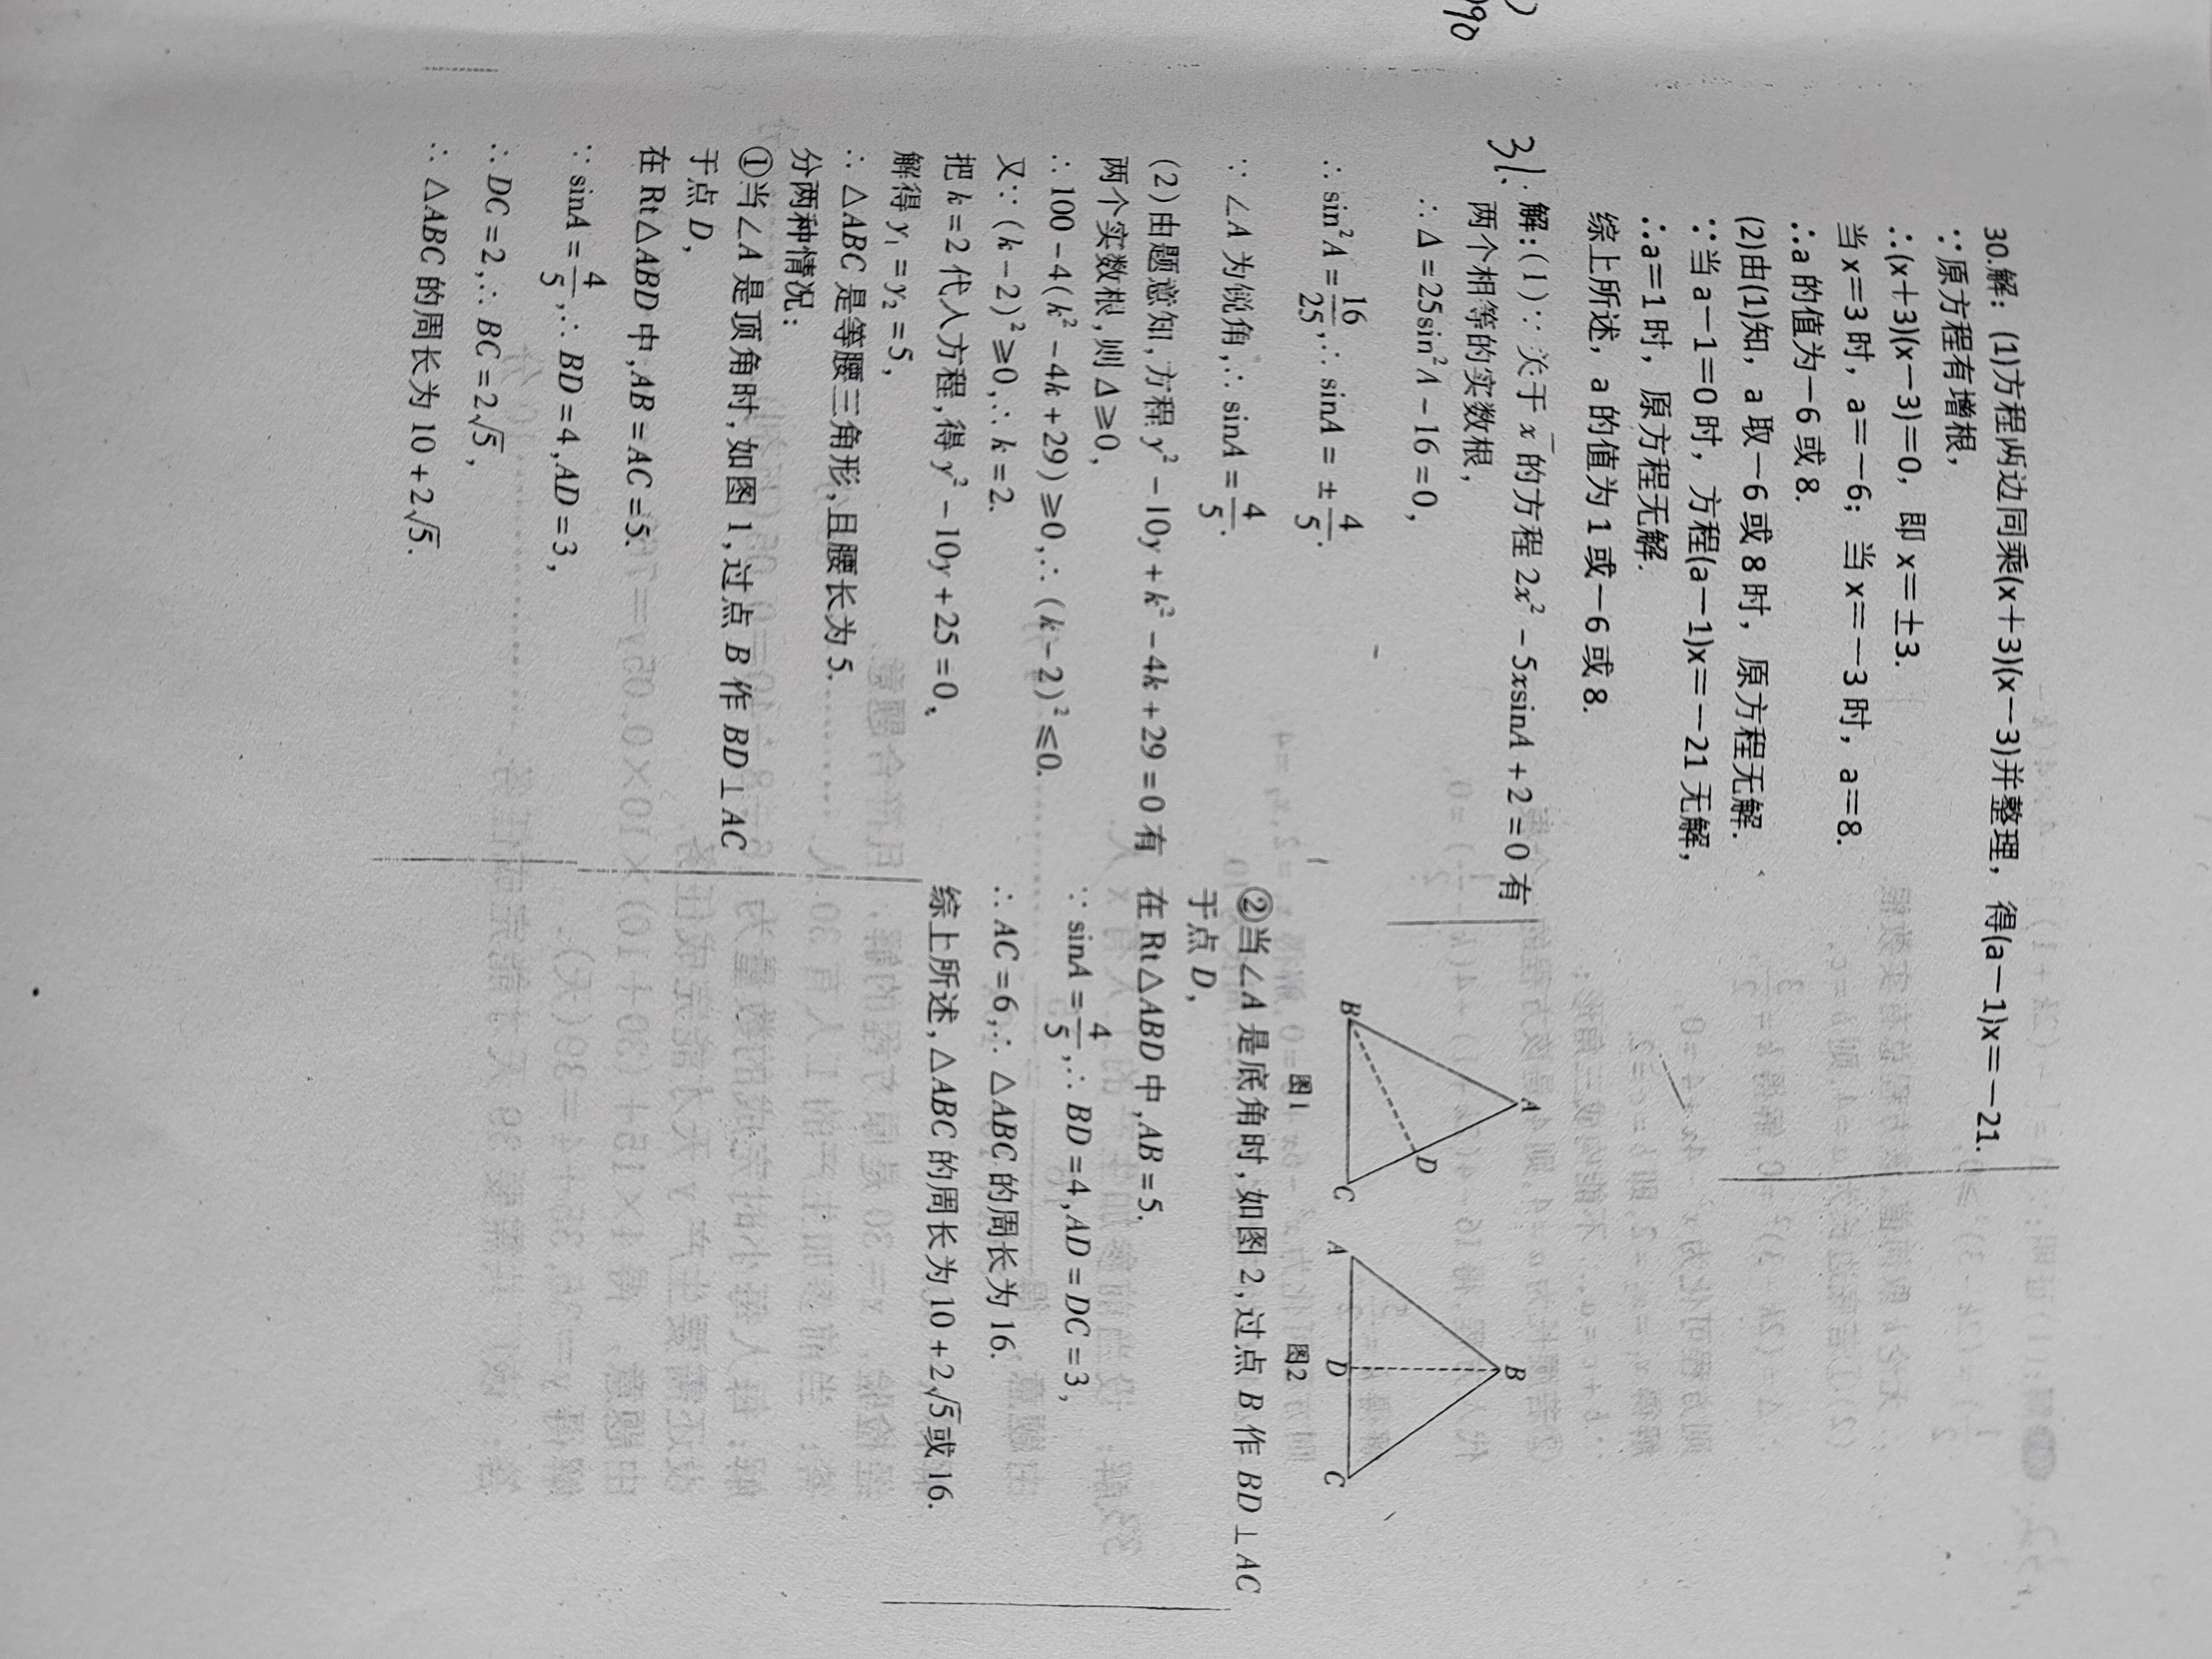 30.解：(1)方程两边同乘(x＋3)(x－3)并整理，得(a－1)x＝－21.
∵原方程有增根，
∴(x＋3)(x－3)＝0，即 x＝±3.
当 x＝3 时，a＝－6；当 x＝－3 时，a＝8.
∴a 的值为－6 或 8.
(2)由(1)知，a 取－6 或 8 时，原方程无解.
∵当 a－1＝0 时，方程(a－1)x＝－21 无解，
∴a＝1 时，原方程无解.
综上所述，a 的值为 1 或－6 或 8.
31.解:(1)∵关于 x 的方程 2x² - 5xsinA + 2 = 0 有
两个相等的实数根,
∴Δ = 25sin²A - 16 = 0,
∴sin²A = 16/25,∴sinA = ±4/5.
∵∠A 为锐角,∴sinA = 4/5.
(2)由题意知,方程 y² - 10y + k² - 4k + 29 = 0 有
两个实数根,则 Δ≥0,
∴100 - 4(k² - 4k + 29)≥0,∴(k - 2)²≤0.
又∵(k - 2)²≥0,∴k = 2.
把 k = 2 代入方程,得 y² - 10y + 25 = 0,
解得 y₁ = y₂ = 5,
∴△ABC 是等腰三角形,且腰长为 5.
分两种情况:
①当∠A 是顶角时,如图 1,过点 B 作 BD⊥AC
于点 D,
在 Rt△ABD 中,AB = AC = 5.
∵sinA = 4/5,∴BD = 4,AD = 3,
∴DC = 2,∴BC = 2√5,
∴△ABC 的周长为 10 + 2√5.
A
B
D
C
图1
B
A
D
C
图2
②当∠A 是底角时,如图 2,过点 B 作 BD⊥AC
于点 D,
在 Rt△ABD 中,AB = 5.
∵sinA = 4/5,∴BD = 4,AD = DC = 3,
∴AC = 6,∴△ABC 的周长为 16.
综上所述,△ABC 的周长为 10 + 2√5或 16.